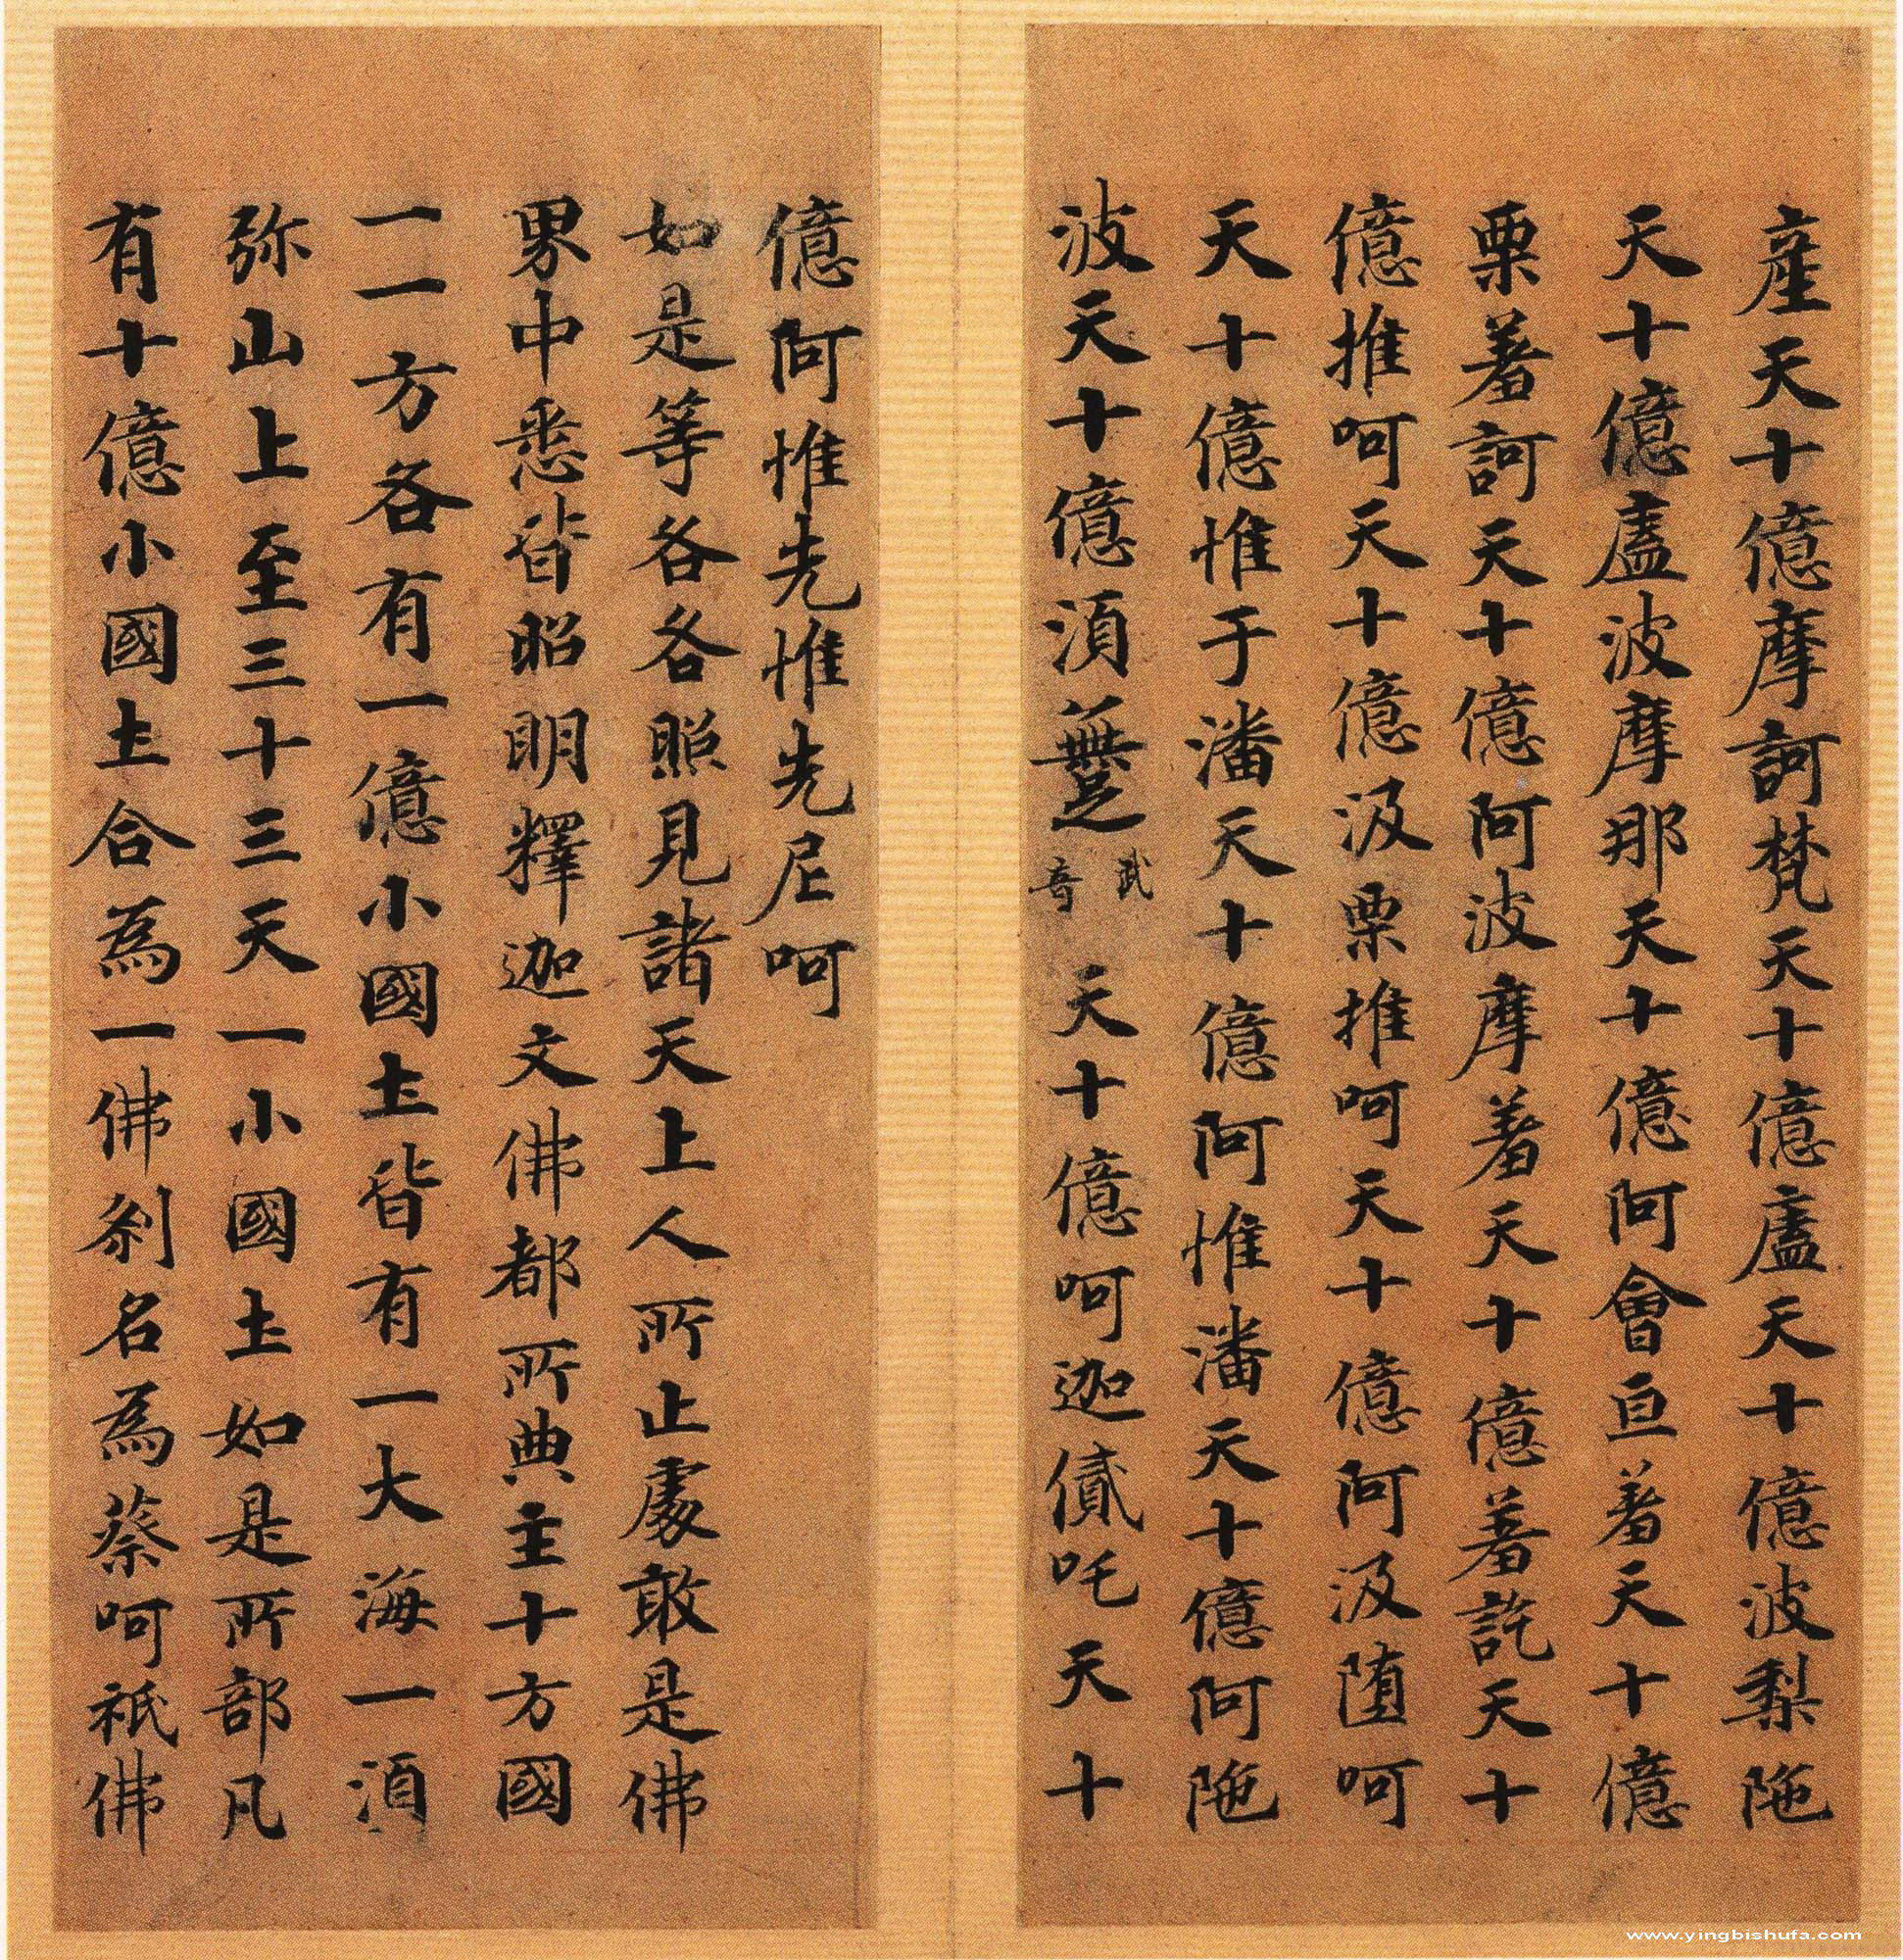 産天十億摩訶梵天十億廬天十億波梨陁
天十億廬波摩那天十億阿會亘著天十億
栗著訶天十億阿波摩著天十億著詑天十
億推呵天十億汲栗推呵天十億阿汲堕呵
天十億惟于潘天十億阿惟潘天十億阿陁
波天十億湏 武 音 天十億呵迦貳吒天十
億阿惟先惟先尼呵
如是等各各照見諸天上人所止處敢是佛
界中悉皆昭明釋迦文佛都所典主十方國
一一方各有一億小國土皆有一大海一湏
弥山上至三十三天一小國土如是所部凡
有十億小國土合為一佛刹名為蔡呵祇佛
www.yingbishufa.com